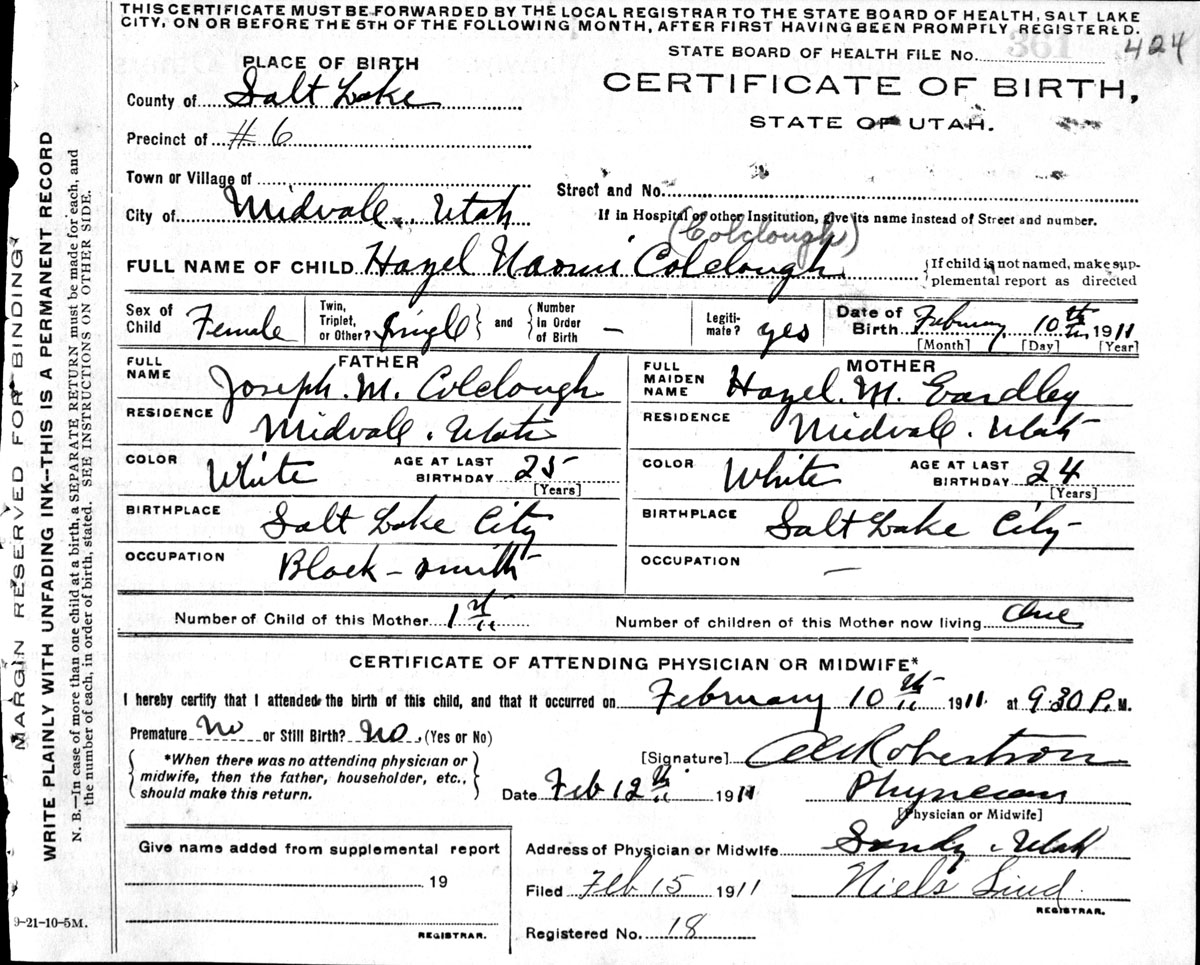 THIS CERTIFICATE MUST BE FORWARDED BY THE LOCAL REGISTRAR TO THE STATE BOARD OF HEALTH, SALT LAKE
CITY, ON OR BEFORE THE 5TH OF THE FOLLOWING MONTH, AFTER FIRST HAVING BEEN PROMPTLY REGISTERED.
361 424
STATE BOARD OF HEALTH FILE No.
PLACE OF BIRTH
CERTIFICATE OF BIRTH,
STATE OF UTAH.
County of Salt Lake
Precinct of #6
Town or Village of
Street and No.
City of Midvale. Utah
If in Hospital or other Institution, give its name instead of Street and number.
(Colclough)
FULL NAME OF CHILD Hazel Naomi Colclough
{If child is not named, make sup-
plemental report as directed
Sex of Child Female
Twin, Triplet, or Other? Single } and { Number in Order of Birth —
Legiti-mate? yes
Date of Birth February 10th 1911
[Month] [Day] [Year]
FATHER
FULL NAME Joseph. M. Colclough
RESIDENCE Midvale. Utah
COLOR White AGE AT LAST BIRTHDAY 25
[Years]
BIRTHPLACE Salt Lake City
OCCUPATION Black-smith
MOTHER
FULL MAIDEN NAME Hazel. M. Eardley
RESIDENCE Midvale. Utah
COLOR White AGE AT LAST BIRTHDAY 24
[Years]
BIRTHPLACE Salt Lake City
OCCUPATION —
Number of Child of this Mother 1st
Number of children of this Mother now living One
CERTIFICATE OF ATTENDING PHYSICIAN OR MIDWIFE*
I hereby certify that I attended the birth of this child, and that it occurred on February 10th 1911. at 9.30 P. M.
Premature No or Still Birth? No. (Yes or No)
{ *When there was no attending physician or
midwife, then the father, householder, etc.,
should make this return. }
[Signature] Robertson
Date Feb 12th 1911
Physician
[Physician or Midwife]
Address of Physician or Midwife Sandy. Utah
Filed Feb 15 1911
Niels Lind
REGISTRAR.
Registered No. 18
Give name added from supplemental report
19
REGISTRAR.
9-21-10-5M.
MARGIN RESERVED FOR BINDING
WRITE PLAINLY WITH UNFADING INK—THIS IS A PERMANENT RECORD
N. B.—In case of more than one child at a birth, a SEPARATE RETURN must be made for each, and
the number of each, in order of birth, stated. SEE INSTRUCTIONS ON OTHER SIDE.